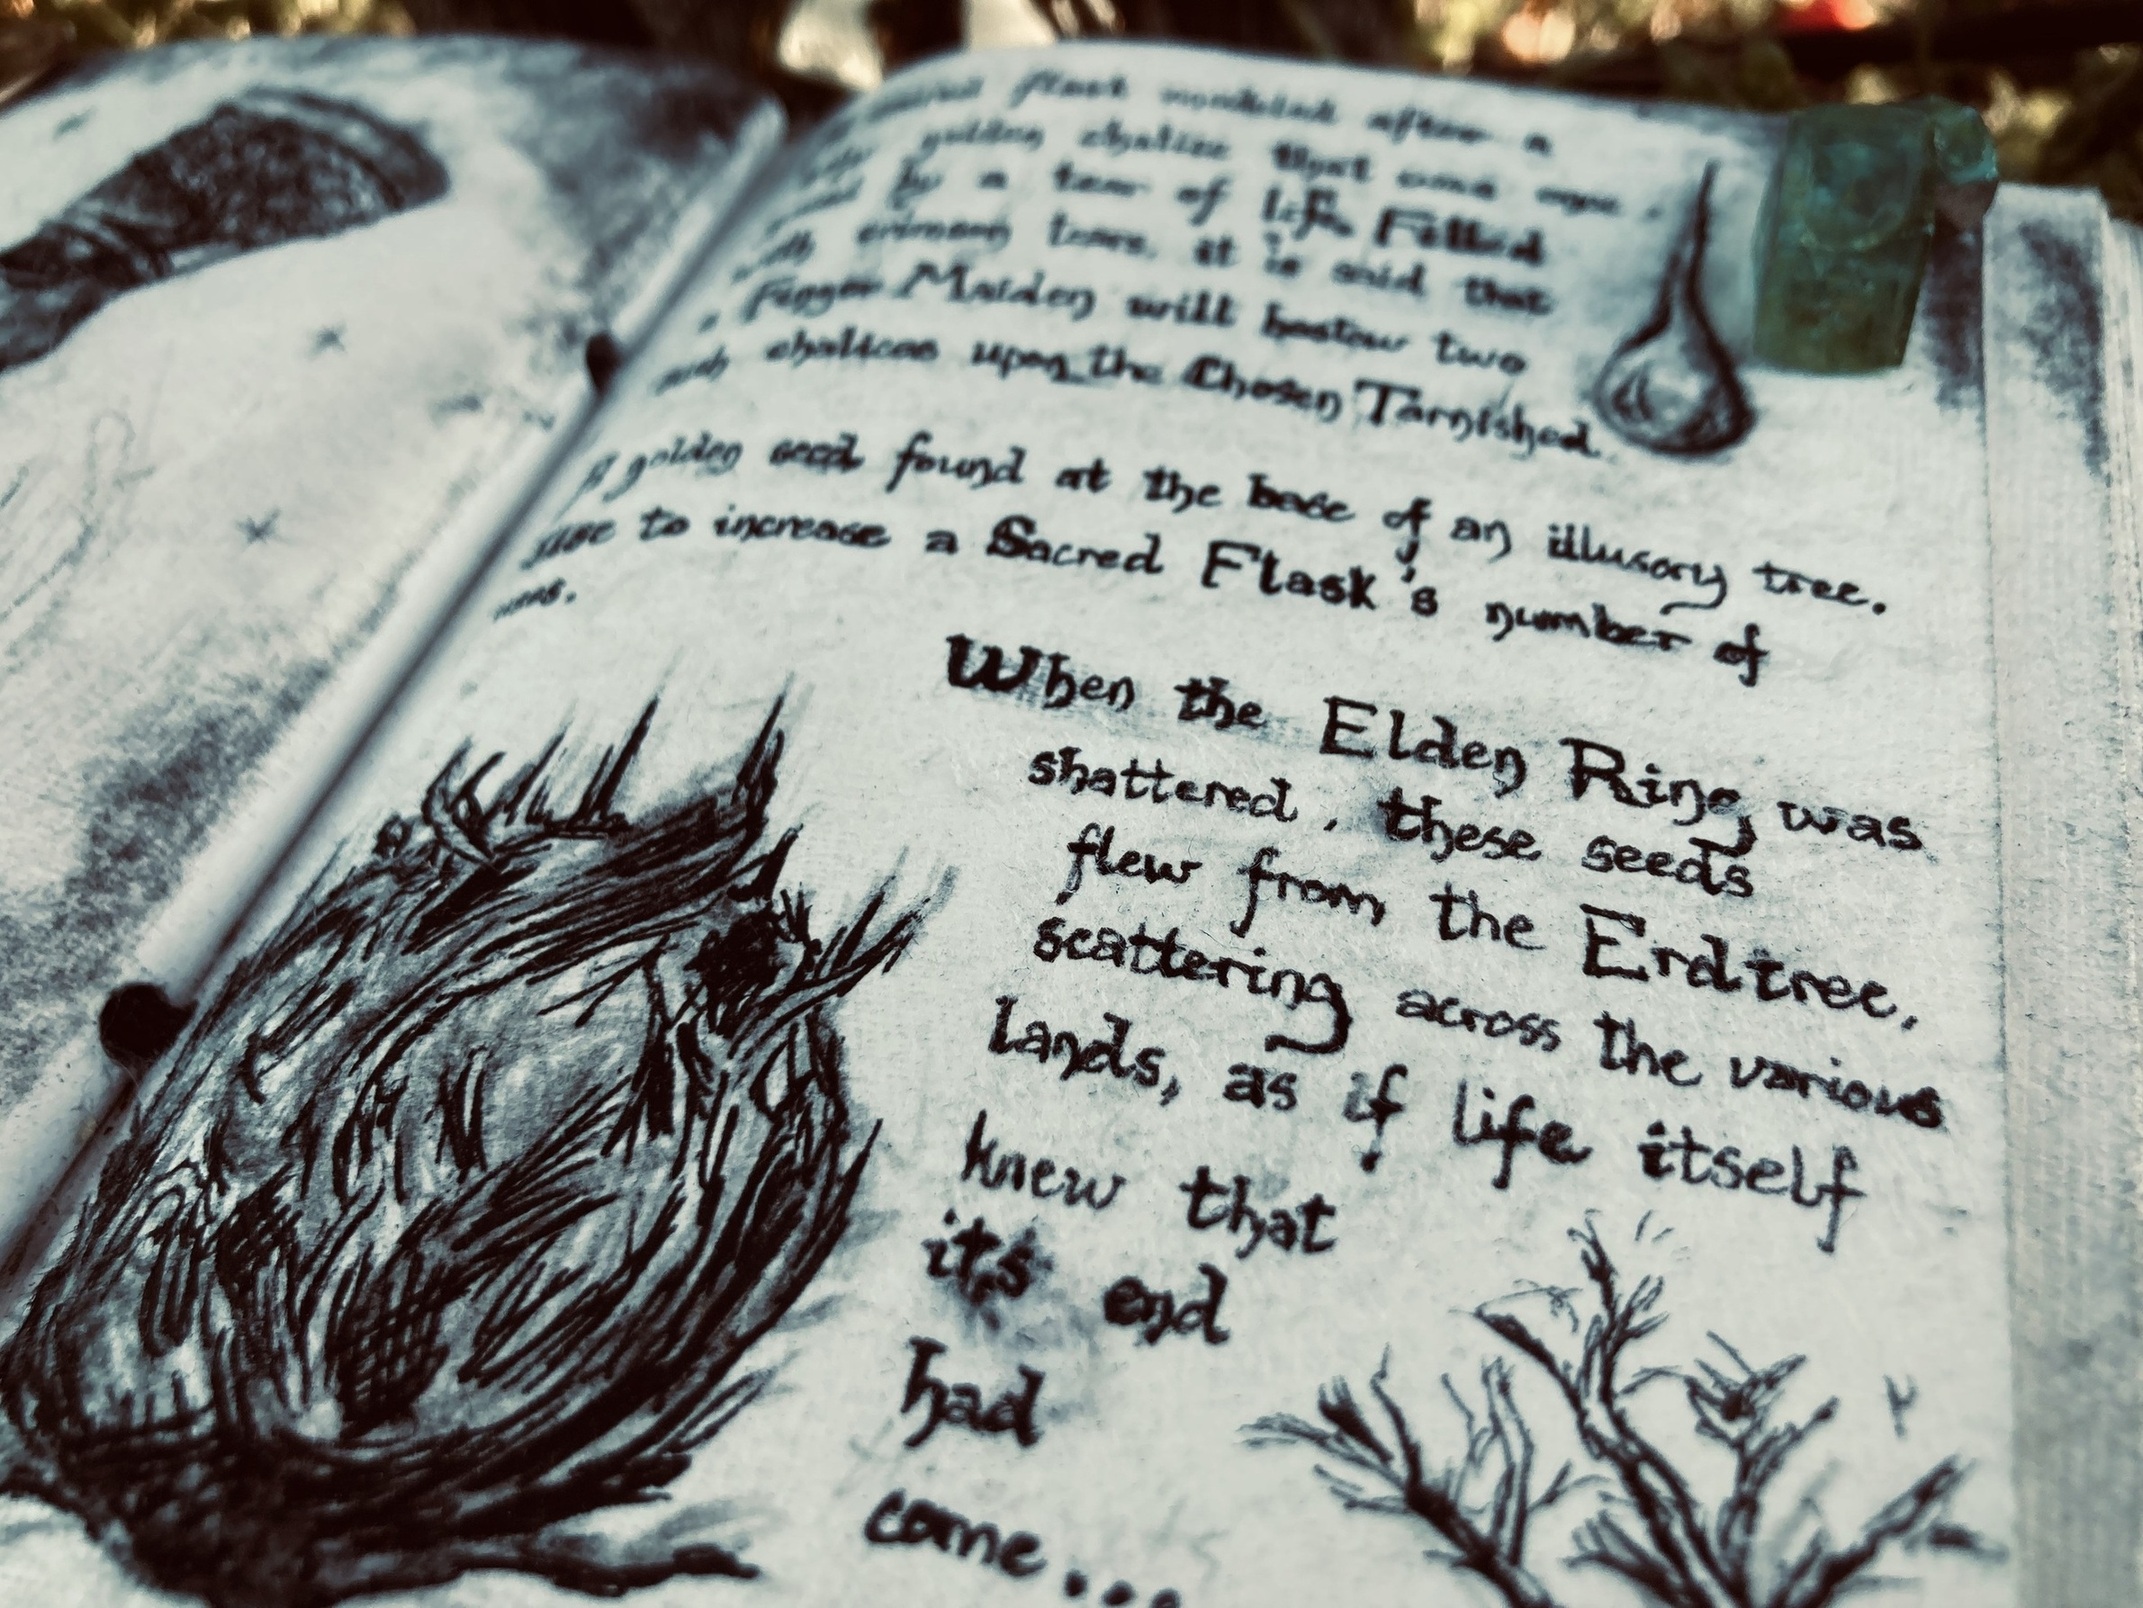 flask modeled after a
golden chalice that once was
by a tear of life. Filled
with crimson tears, it is said that
a Finger Maiden will bestow two
such chalices upon the Chosen Tarnished.
A golden seed found at the base of an illusory tree.
use to increase a Sacred Flask's number of
uses.
When the Elden Ring was
shattered, these seeds
flew from the Erdtree,
scattering across the various
lands, as if life itself
knew that
its end
had
come...